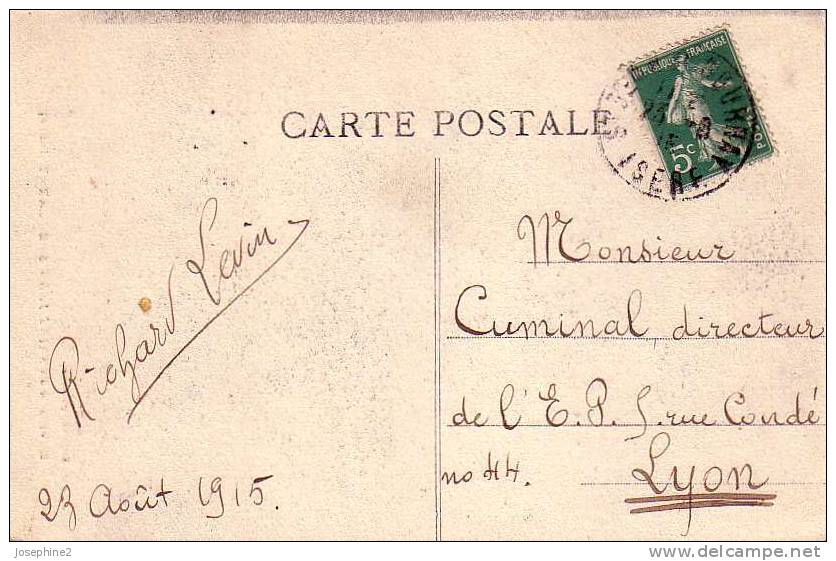 CARTE POSTALE
RÉPUBLIQUE FRANÇAISE
POSTES
5c
ISERE
Richard Levin
23 Août 1915.
Monsieur
Cuminal, directeur
de l'E. P. S. rue Condé
no 44.
Lyon
Josephine2
www.delcampe.net